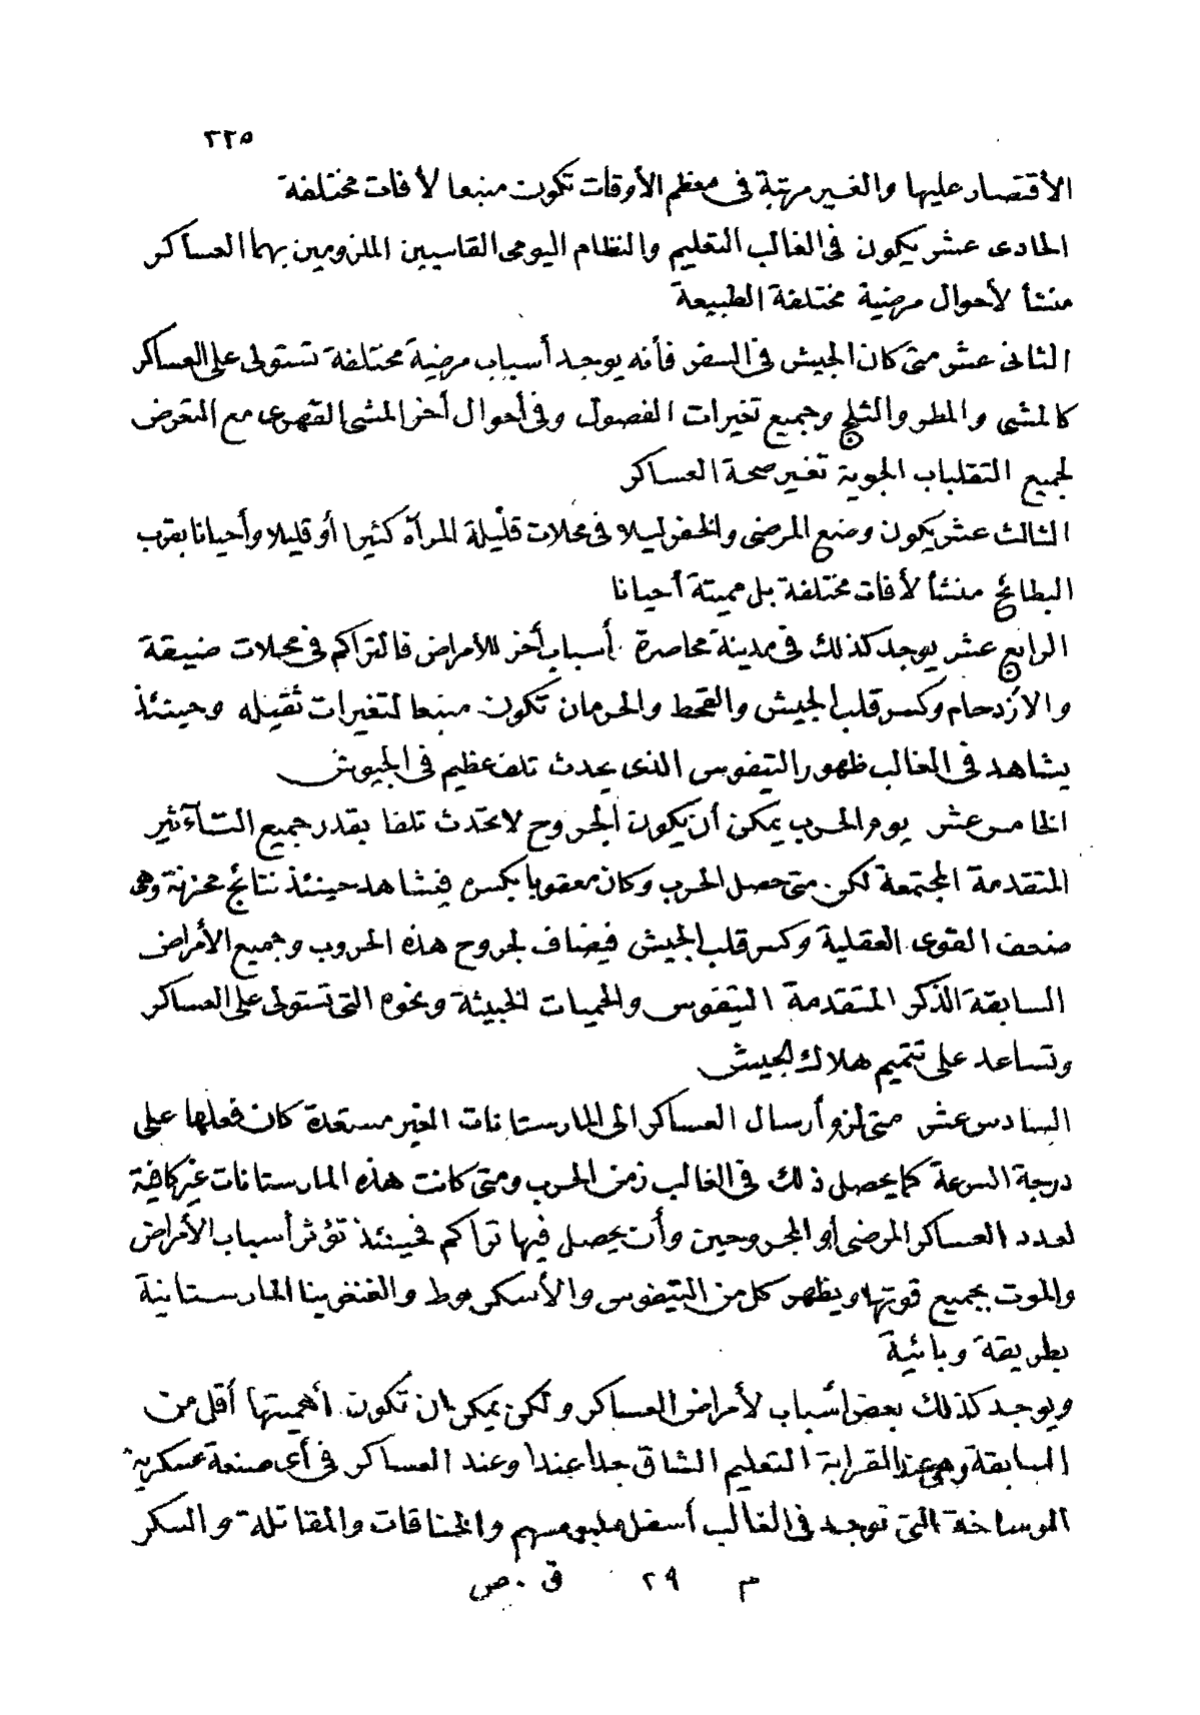 ٢٢٥
الأقتصار عليها والغير مرتبة فى معظم الأوقات تكون منبعا لأفات مختلفة
الحادى عشر يكون فى الغالب التعليم والنظام اليومى القاسيين الملزومين بهما العساكر
منشأ لأحوال مرضية مختلفة الطبيعة
الثانى عشر متى كان الجيش فى السفر فأنه يوجد أسباب مرضية مختلفة تستولى على العساكر
كالمشى والمطر والثلج وجميع تغيرات الفصول وفى أحوال أخر المشى القهرى مع التعرض
لجميع التقلبات الجوية تغير صحة العساكر
الثالث عشر يكون وضع المرضى والخفر ليلا فى محلات قليلة المرآة كثيرا أو قليلا وأحيانا بقرب
البطائح منشأ لأفات مختلفة بل مميتة أحيانا
الرابع عشر يوجد كذلك فى مدينة محاصرة أسباب أخر للأمراض فالتراكم فى محلات ضيقة
والأزدحام وكسر قلب الجيش والقحط والحرمان تكون منبعا لتغيرات ثقيله وحينئذ
يشاهد فى الغالب ظهور التيفوس الذى يحدث تلف عظيم فى الجيوش
الخامس عشر يوم الحرب يمكن أن يكون الجروح لا تحدث تلفا بقدر جميع التآثير
المتقدمة المجتمعة لكن متى حصل الحرب وكان معقوبا بكسره فيشاهد حينئذ نتائج محزنة وهى
ضعف القوى العقلية وكسر قلب الجيش فيضاف لجروح هذه الحروب وجميع الأمراض
السابقة الذكر المتقدمة التيفوس والحميات الخبيثة ونحوه التى تستولى على العساكر
وتساعد على تتميم هلاك الجيش
السادس عشر متى لزم أرسال العساكر الى المارستانات الغير مستعدة كان فعلها على
درجة السرعة كما يحصل ذلك فى الغالب زمن الحرب ومتى كانت هذه المارستانات غير كافية
لعدد العساكر المرضى أو المجروحين وأن يحصل فيها تراكم فحينئذ تؤثر أسباب الأمراض
والموت بجميع قوتها ويظهر كل من التيفوس والأسكربوط والغنغرينا المارستانية
بطريقة وبائية
ويوجد كذلك بعض أسباب لأمراض العساكر ولكن يمكن ان تكون أهميتها أقل من
السابقة وهى عند القرابة التعليم الشاق جدا عندا وعند العساكر فى أى صنعة عسكرية
الوساخة التى توجد فى الغالب أسفل ملبوسهم والخناقات والمقاتلة والسكر
م ٢٩ ق . ص